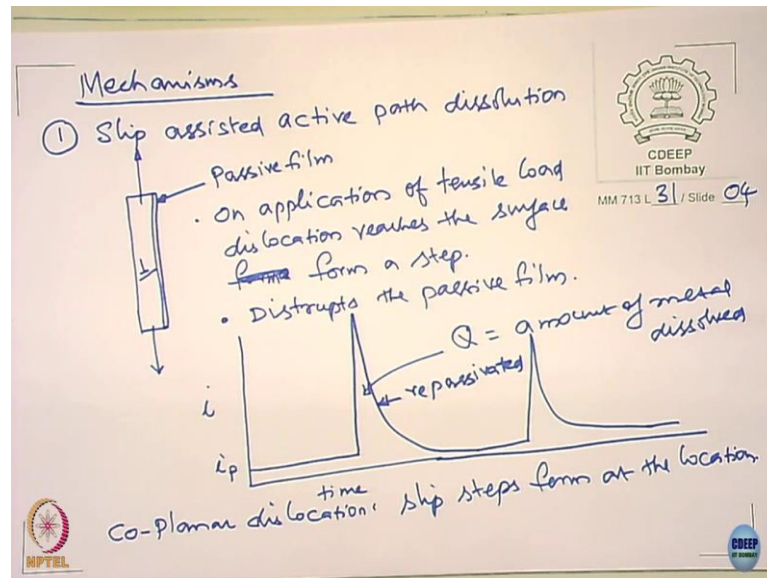 Mechanisms
① Slip assisted active path dissolution
Passive film
. On application of tensile load
dislocation reaches the surface
form a step.
. Distrupts the passive film.
Q = amount of metal
dissolved
repassivated
i
ip
time
Co-Planar dislocation: slip steps form at the location
CDEEP
IIT Bombay
MM 713 L 31 / Slide 04
NPTEL
CDEEP
IIT BOMBAY